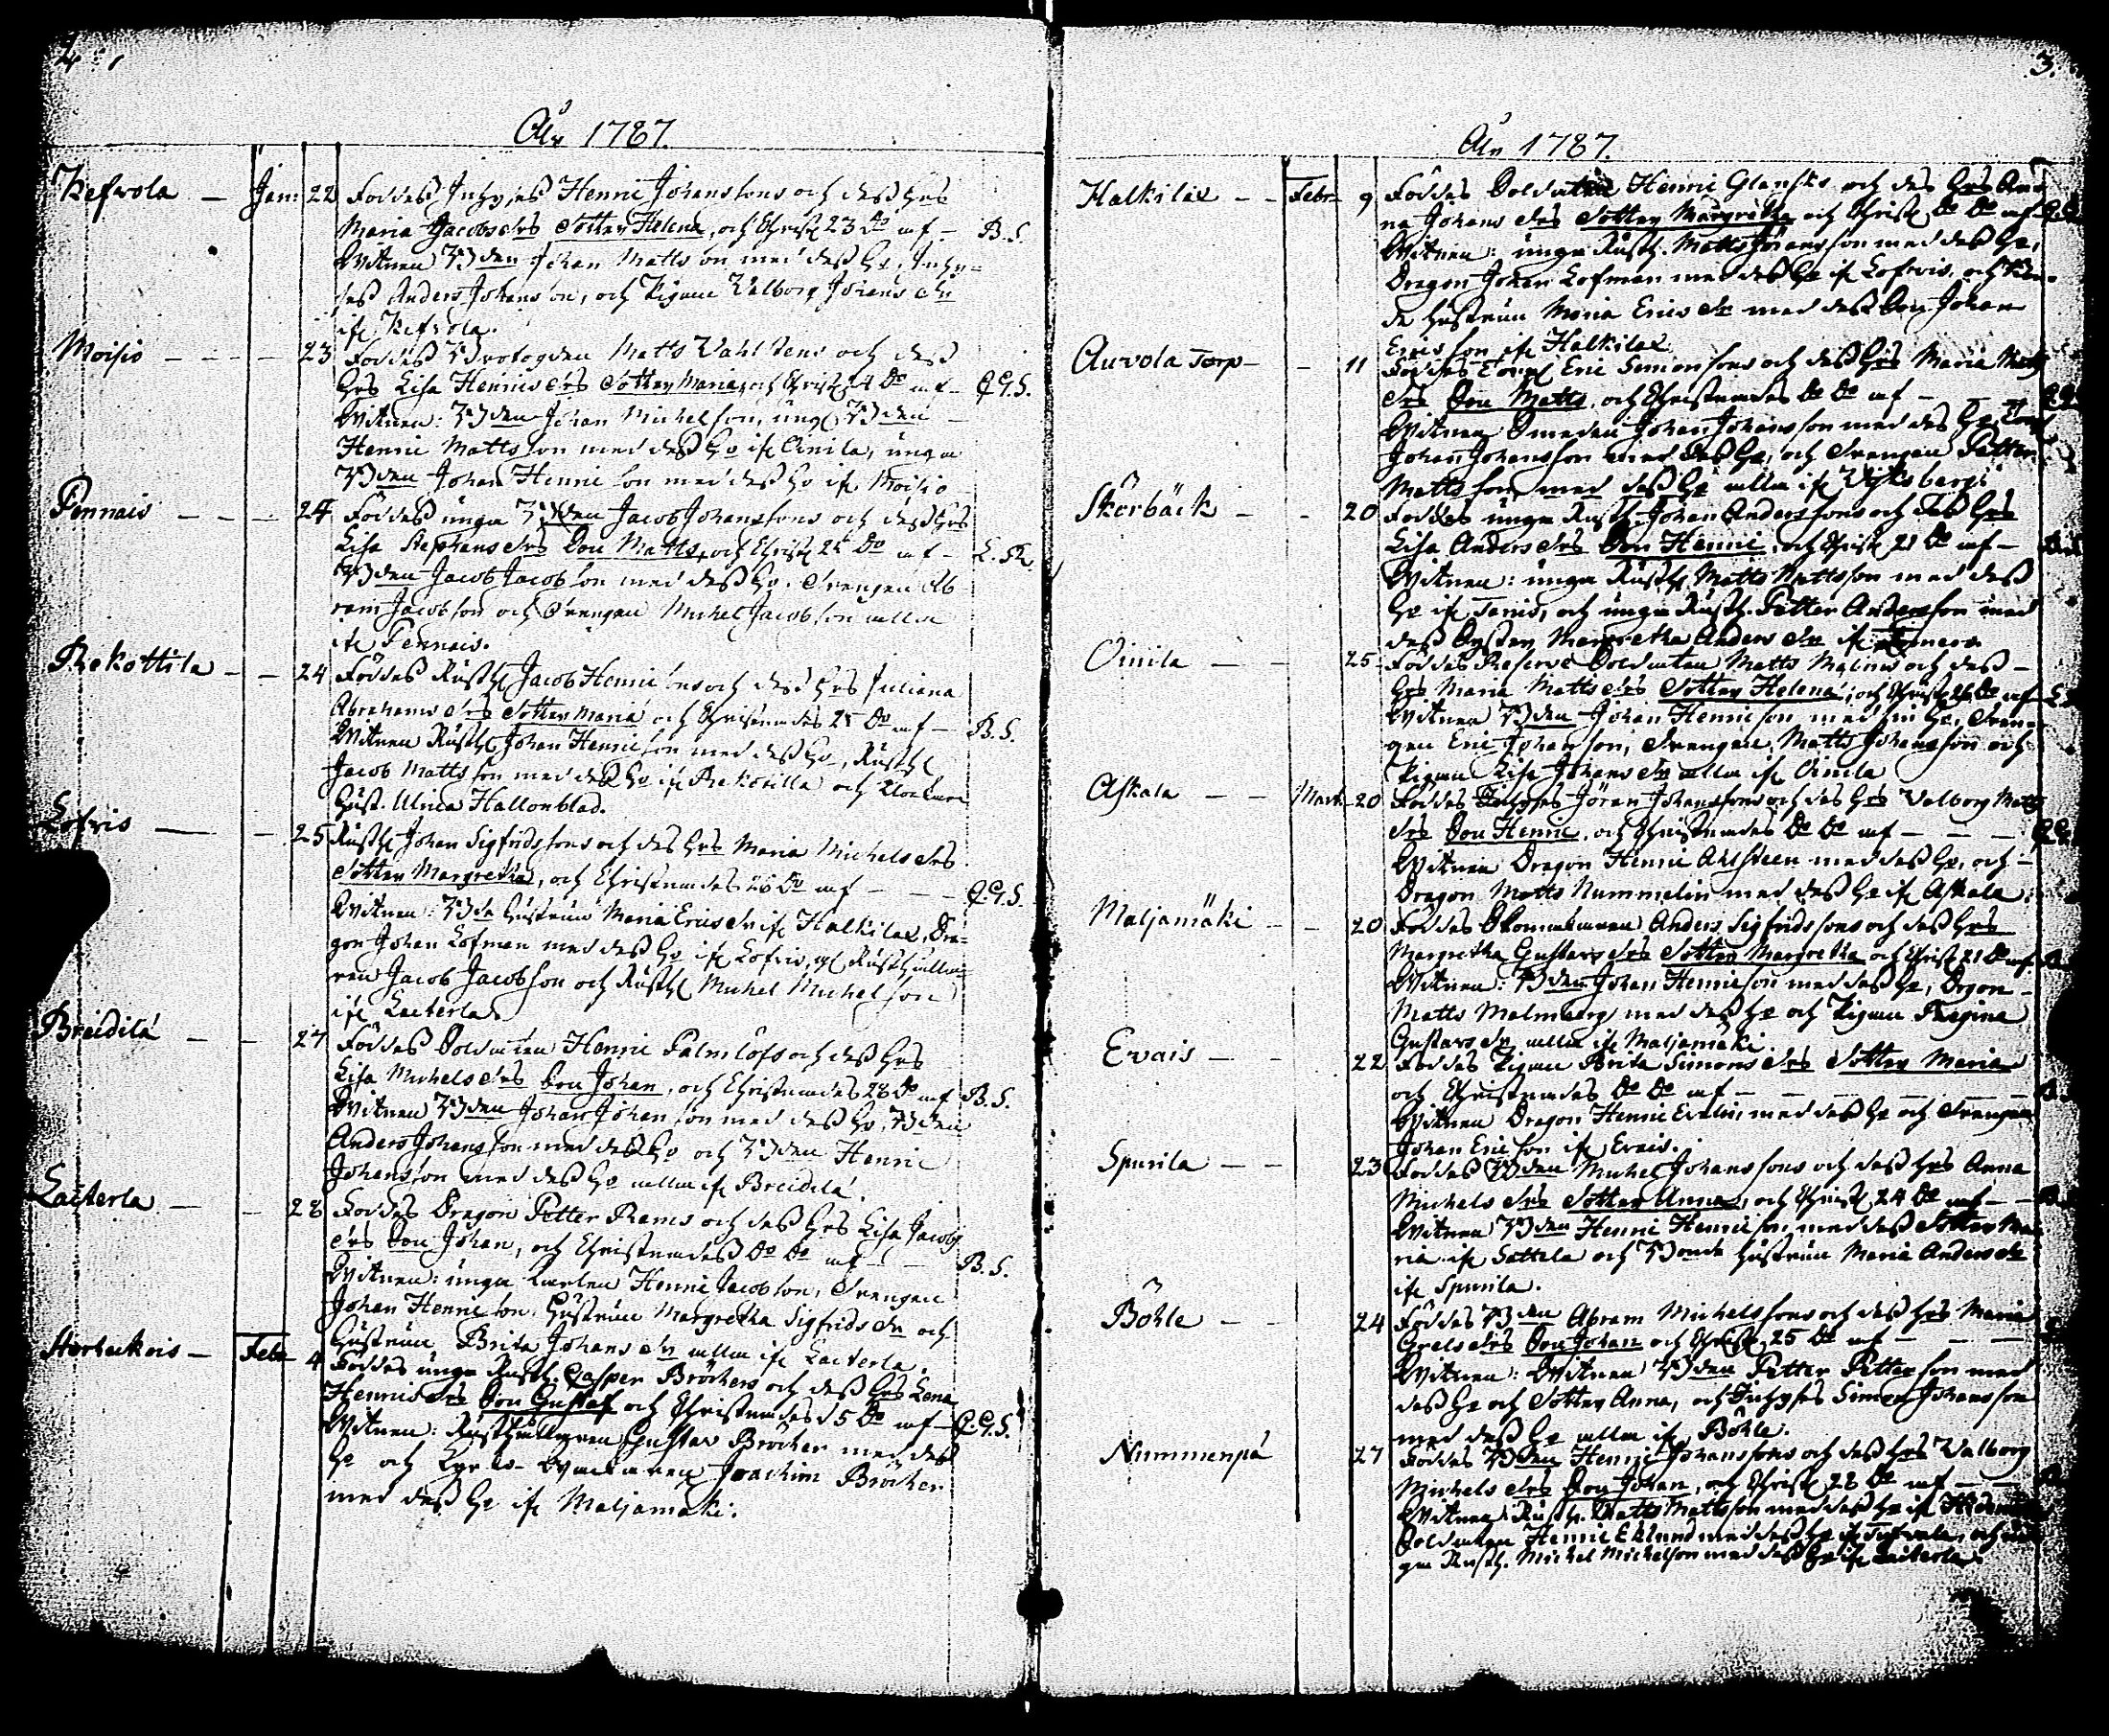 År 1787.
Kefvola — Jan: 22 Föddes Inhyses Henric Johanssons och dess hus
Maria Jacobs drs dotter Helena, och Christ 23 do af — B. S.
Witnen Bden Johan Mattsson med dess h:o, Inhy=
ses Anders Johansson, och Pigan Walborg Johans dr
if. Kefvola.
Moisio — — — 23 Föddes Matts Wahlstens och dess
hus Lisa Henrics drs dotter Maria, och Christ 24 do af — C. G. S.
Witnen: Bden Johan Michelsson, ung Bden
Henric Mattsson med dess h:o if. Oinila, unga
Bden Johan Henricsson med dess h:o if. Moisio
Pennais — — — 24 Föddes unga Bden Jacob Johanssons och dess hus
Lisa Stephans drs Son Matts, och Christ 25 do af —
Bden Jacob Jacobsson med dess h:o. Drengen Ab
ram Jacobsson och Drengen Michel Jacobsson alla
if. Pennais.
Rekottila — — 24 Föddes Rusth. Jacob Henricssons och dess hus Juliana
Abrahams drs dotter Maria och Christnades 25 do af — B. S.
Witnen Rusth. Johan Henricsson med dess h:o, Rusth.
Jacob Mattsson med dess h:o if. Rekotilla och
Hust. Ulrica Hallonblad.
Lofvis — — 25 Rusth. Johan Sigfridssons och des hus Maria Michels drs
dotter Margretha, och Christnades 26 do af — — C. G. S.
Witnen: Bde hustrun Maria Erics dr if. Halkilax, Dra=
gon Johan Lofman med dess h:o if. Lofvis, gl. Rusthålla
ren Jacob Jacobsson och Rusth. Michel Michelsson
if. Laiterla.
Breidila — — 27 Föddes Soldaten Henric Palmlöfs och dess hus
Lisa Michels drs Son Johan, och Christnades 28 do af B. S.
Witnen Bden Johan Johansson med dess h:o, Bden
Anders Johansson med dess h:o och Bden Henric
Johansson med dess h:o alla if. Breidila.
Laiterla — — 28 Föddes Dragon Petter Rams och dess hus Lisa Jacobs
drs Son Johan, och Christnades do do af — B. S.
Witnen: unga Karlen Henric Jacobsson, Drengen
Johan Henricsson, Hustrun Margretha Sigfrids dr och
Hustrun Brita Johans dr alla if. Laiterla.
— Febr 4 Föddes unga Rusth. Casper Bröckers och dess hus Lena
Henrics drs Son Gustaf och Christnades d 5 do af — C. G. S.
Witnen: Rusthållaren Gustav Bröcker med des
h:o och Joachim Bröcker
med dess h:o if. Maljamäki.
3.
År 1787.
Halkilax — — Febr 9 Föddes Soldaten Henric Glansks och des hus An
na Johans drs dotter Margretha och Christ do do af
Witnen: unga Rusth. Matts Jöransson med dess h:o,
Dragon Johan Lofman med dess h:o if. Lofvis, och
de hustrun Maria Erics dr med dess Son Johan
Ericsson if. Halkilax
Auvola Torp — — 11 Föddes Torp. Eric Simonssons och dess hus Maria Matts
drs Son Matts, och Christnades do do af — —
Witnen Smeden Johan Johansson med des h:o, Torp.
Johan Johansson med dess h:o, och Drengen Petter
Mattsson med dess h:o alla if. Wiksberg.
Skorbäck — — 20 Föddes unga Rusth. Johan Anderssons och dess hus
Lisa Anders drs Son Henric, och Christ 21 do af —
Witnen: unga Rusth. Matts Mattsson med dess
h:o if. Tanis, och unga Rusth. Petter Andersson med
dess Syster Margretha Anders dr if.
Oinila — — 25 Föddes Reserve Soldaten Matts Malins och dess
hus Maria Matts drs dotter Helena, och Christ 26 do af —
Witnen Bden Johan Henricsson med sin h:o, Dren
gen Eric Johansson, Drengen Matts Johansson och
Pigan Lisa Johans dr alla if. Oinila
Askala — — Mart. 20 Föddes Inhyses Jöran Johanssons och des hus Walborg Matts
drs Son Henric, och Christnades do do af — — —
Witnen Dragon Henric Ahlsteen med dess h:o, och
Dragon Matts Nummelin med dess h:o if. Askala.
Maljamäki — — 20 Föddes Skomakaren Anders Sigfridssons och dess hus
Margretha Gustavs drs dotter Margretha och Christ 21 do af
Witnen: Bden Johan Henricsson med dess h:o, Drgon
Matts Malmberg med dess h:o och Pigan Regina
Gustavs dr alla if. Maljamäki
Evais — — 22 Föddes Pigan Brita Simons drs dotter Maria
och Christnades do do af — — — — —
Witnen Dragon Henric Evelin, med dess h:o och Drengen
Johan Ericsson if. Evais.
Spurila — — 23 Föddes Bden Michel Johanssons och dess hus Anna
Michels drs dotter Anna, och Christ 24 do af — —
Witnen Bden Henric Henricsson med dess dotter Ma
ria if. Sattela och Bonde hustrun Maria Anders dr
if. Spurila.
Böhle — — 24 Föddes Bden Abram Michelssons och dess hus Maria
Grels drs Son Johan och Christ. 25 do af — — —
Witnen: Witnen Bden Petter Pettersson med
dess h:o och dotter Anna, och Inhyses Simon Johansson
med dess h:o alla if. Böhle.
Nummenpä 27 Föddes Bden Henric Johanssons och dess hus Walborg
Michels drs Son Johan, och Christ 28 do af — —
Witnen Rusth. Matts Mattsson med dess h:o if.
Soldaten Henric Eklund med dess h:o if. och un
ga Rusth. Michel Michelsson med dess h:o if. Laiterla.